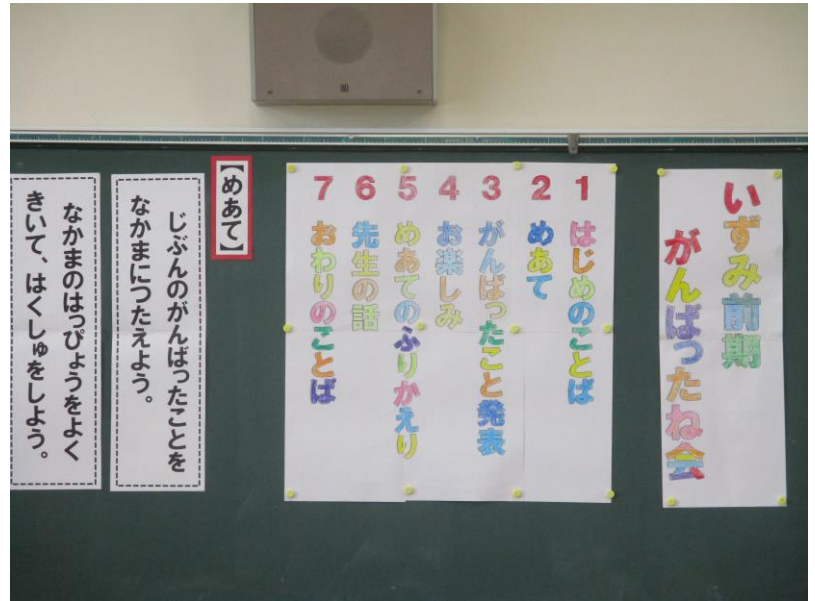 いずみ前期
がんばったね会
1 はじめのことば
2 めあて
3 がんばったこと発表
4 お楽しみ
5 めあてのふりかえり
6 先生の話
7 おわりのことば
【めあて】
じぶんのがんばったことを
なかまにつたえよう。
なかまのはっぴょうをよく
きいて、はくしゅをしよう。